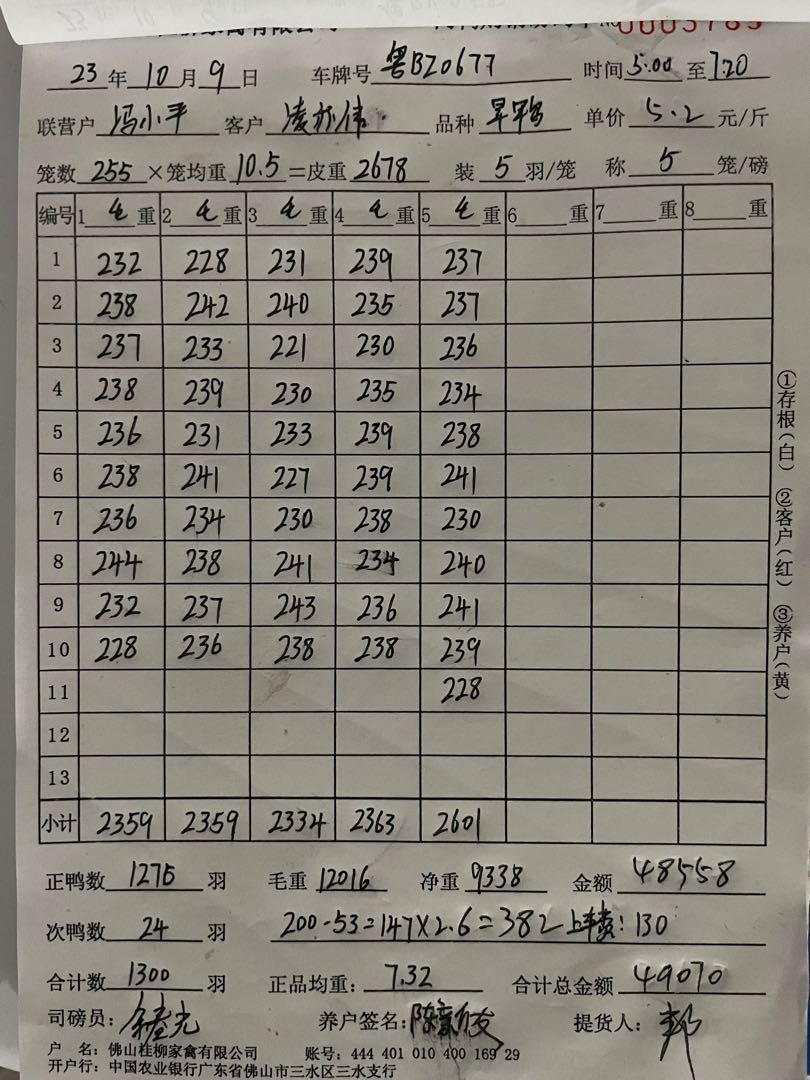 0003785
23年10月9日 车牌号 粤BZ0677 时间5:00至7:20
联营户 冯小平 客户 凌 伟 品种 单价 5.2 元/斤
笼数 255 ×笼均重 10.5 =皮重 2678 装 5 羽/笼 称 5 笼/磅
编号 1 毛 重 2 毛 重 3 毛 重 4 毛 重 5 毛 重 6 重 7 重 8 重
1 232 228 231 239 237
2 238 242 240 235 237
3 237 233 221 230 236
4 238 239 230 235 234
5 236 231 233 239 238
6 238 241 227 239 241
7 236 234 230 238 230
8 244 238 241 234 240
9 232 237 243 236 241
10 228 236 238 238 239
11 228
12
13
小计 2359 2359 2334 2363 2601
正鸭数 1276 羽 毛重 12016 净重 9338 金额 48558
次鸭数 24 羽 200-53=147×2.6=382 上车费:130
合计数 1300 羽 正品均重: 7.32 合计总金额 49070
司磅员: 养户签名: 提货人:
户 名: 佛山桂柳家禽有限公司 账号: 444 401 010 400 169 29
开户行: 中国农业银行广东省佛山市三水区三水支行
①存根(白) ②客户(红) ③养户(黄)